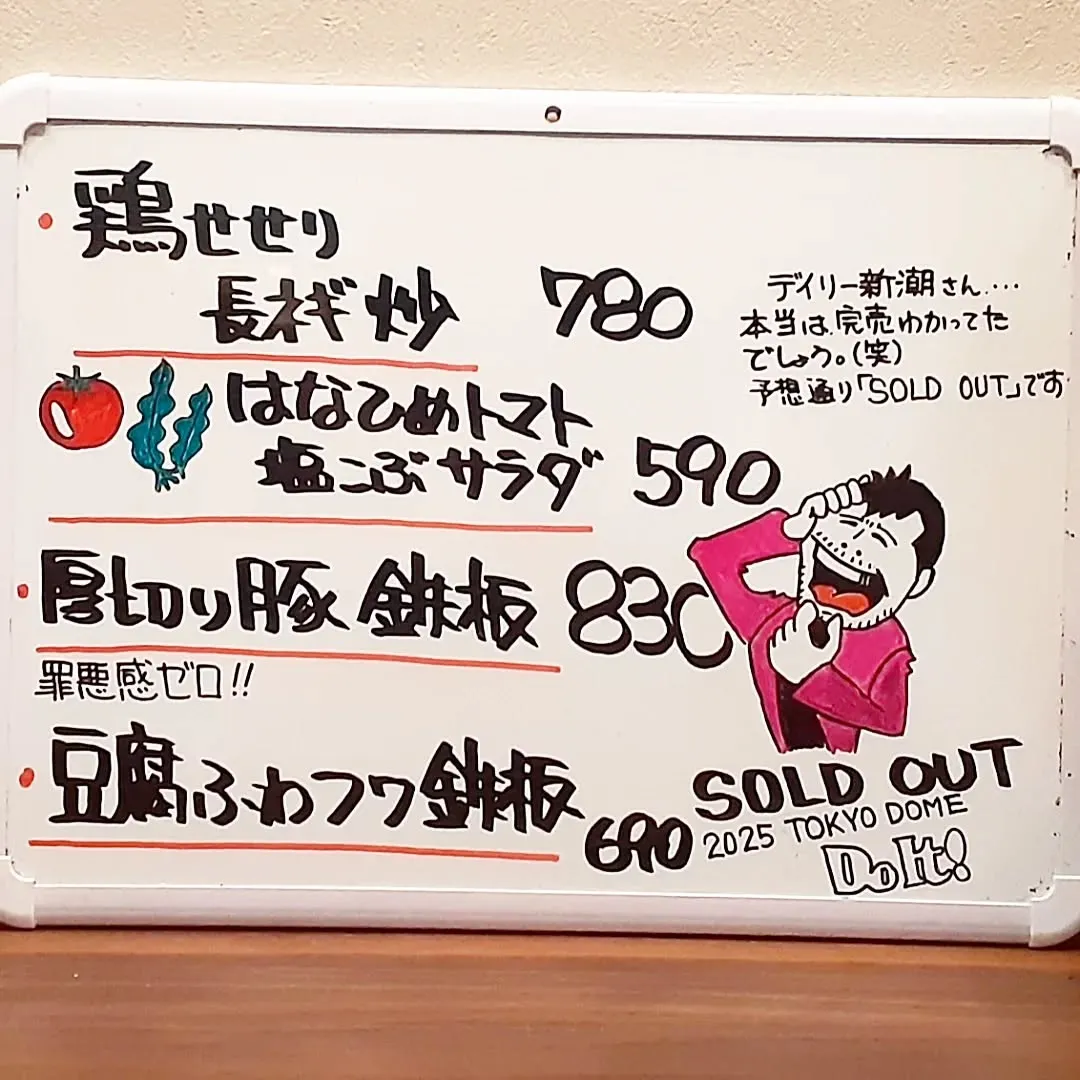 鶏せせり
長ネギ炒 780
はなひめトマト
塩こぶサラダ 590
厚切り豚鉄板 830
罪悪感ゼロ!!
豆腐ふわフワ鉄板
690
デイリー新潮さん....
本当は、完売わかってた
でしょう。(笑)
予想通り「SOLD OUT」です
SOLD OUT
2025 TOKYO DOME
Do It!